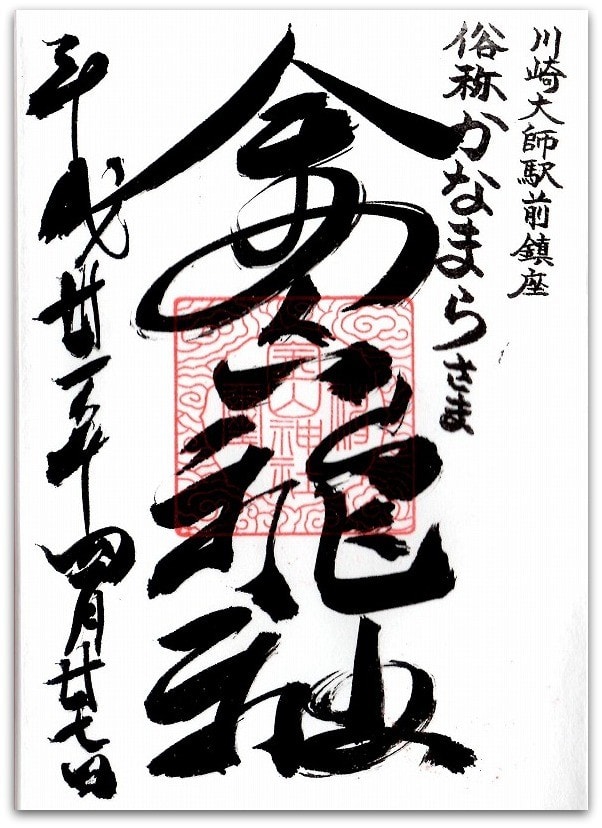 川崎大師駅前鎮座
俗称かなまらさま
金山神社
金山神社
平成廿一年四月廿七日